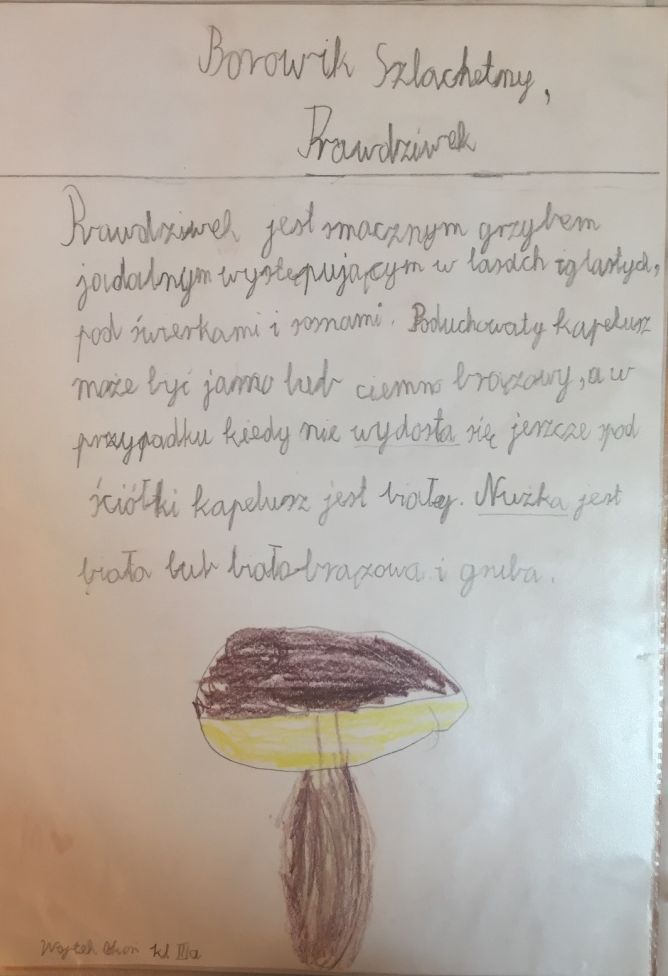 Borowik Szlachetny,
Prawdziwek
Prawdziwek jest smacznym grzybem
jadalnym występującym w lasach iglastych,
pod świerkami i sosnami. Poduchowaty kapelusz
może być jasno lub ciemno brązowy, a w
przypadku kiedy nie wydosta się jeszcze spod
ściółki kapelusz jest biały. Nużka jest
biała lub biało brązowa i gruba.
Wojtek kl IIIa